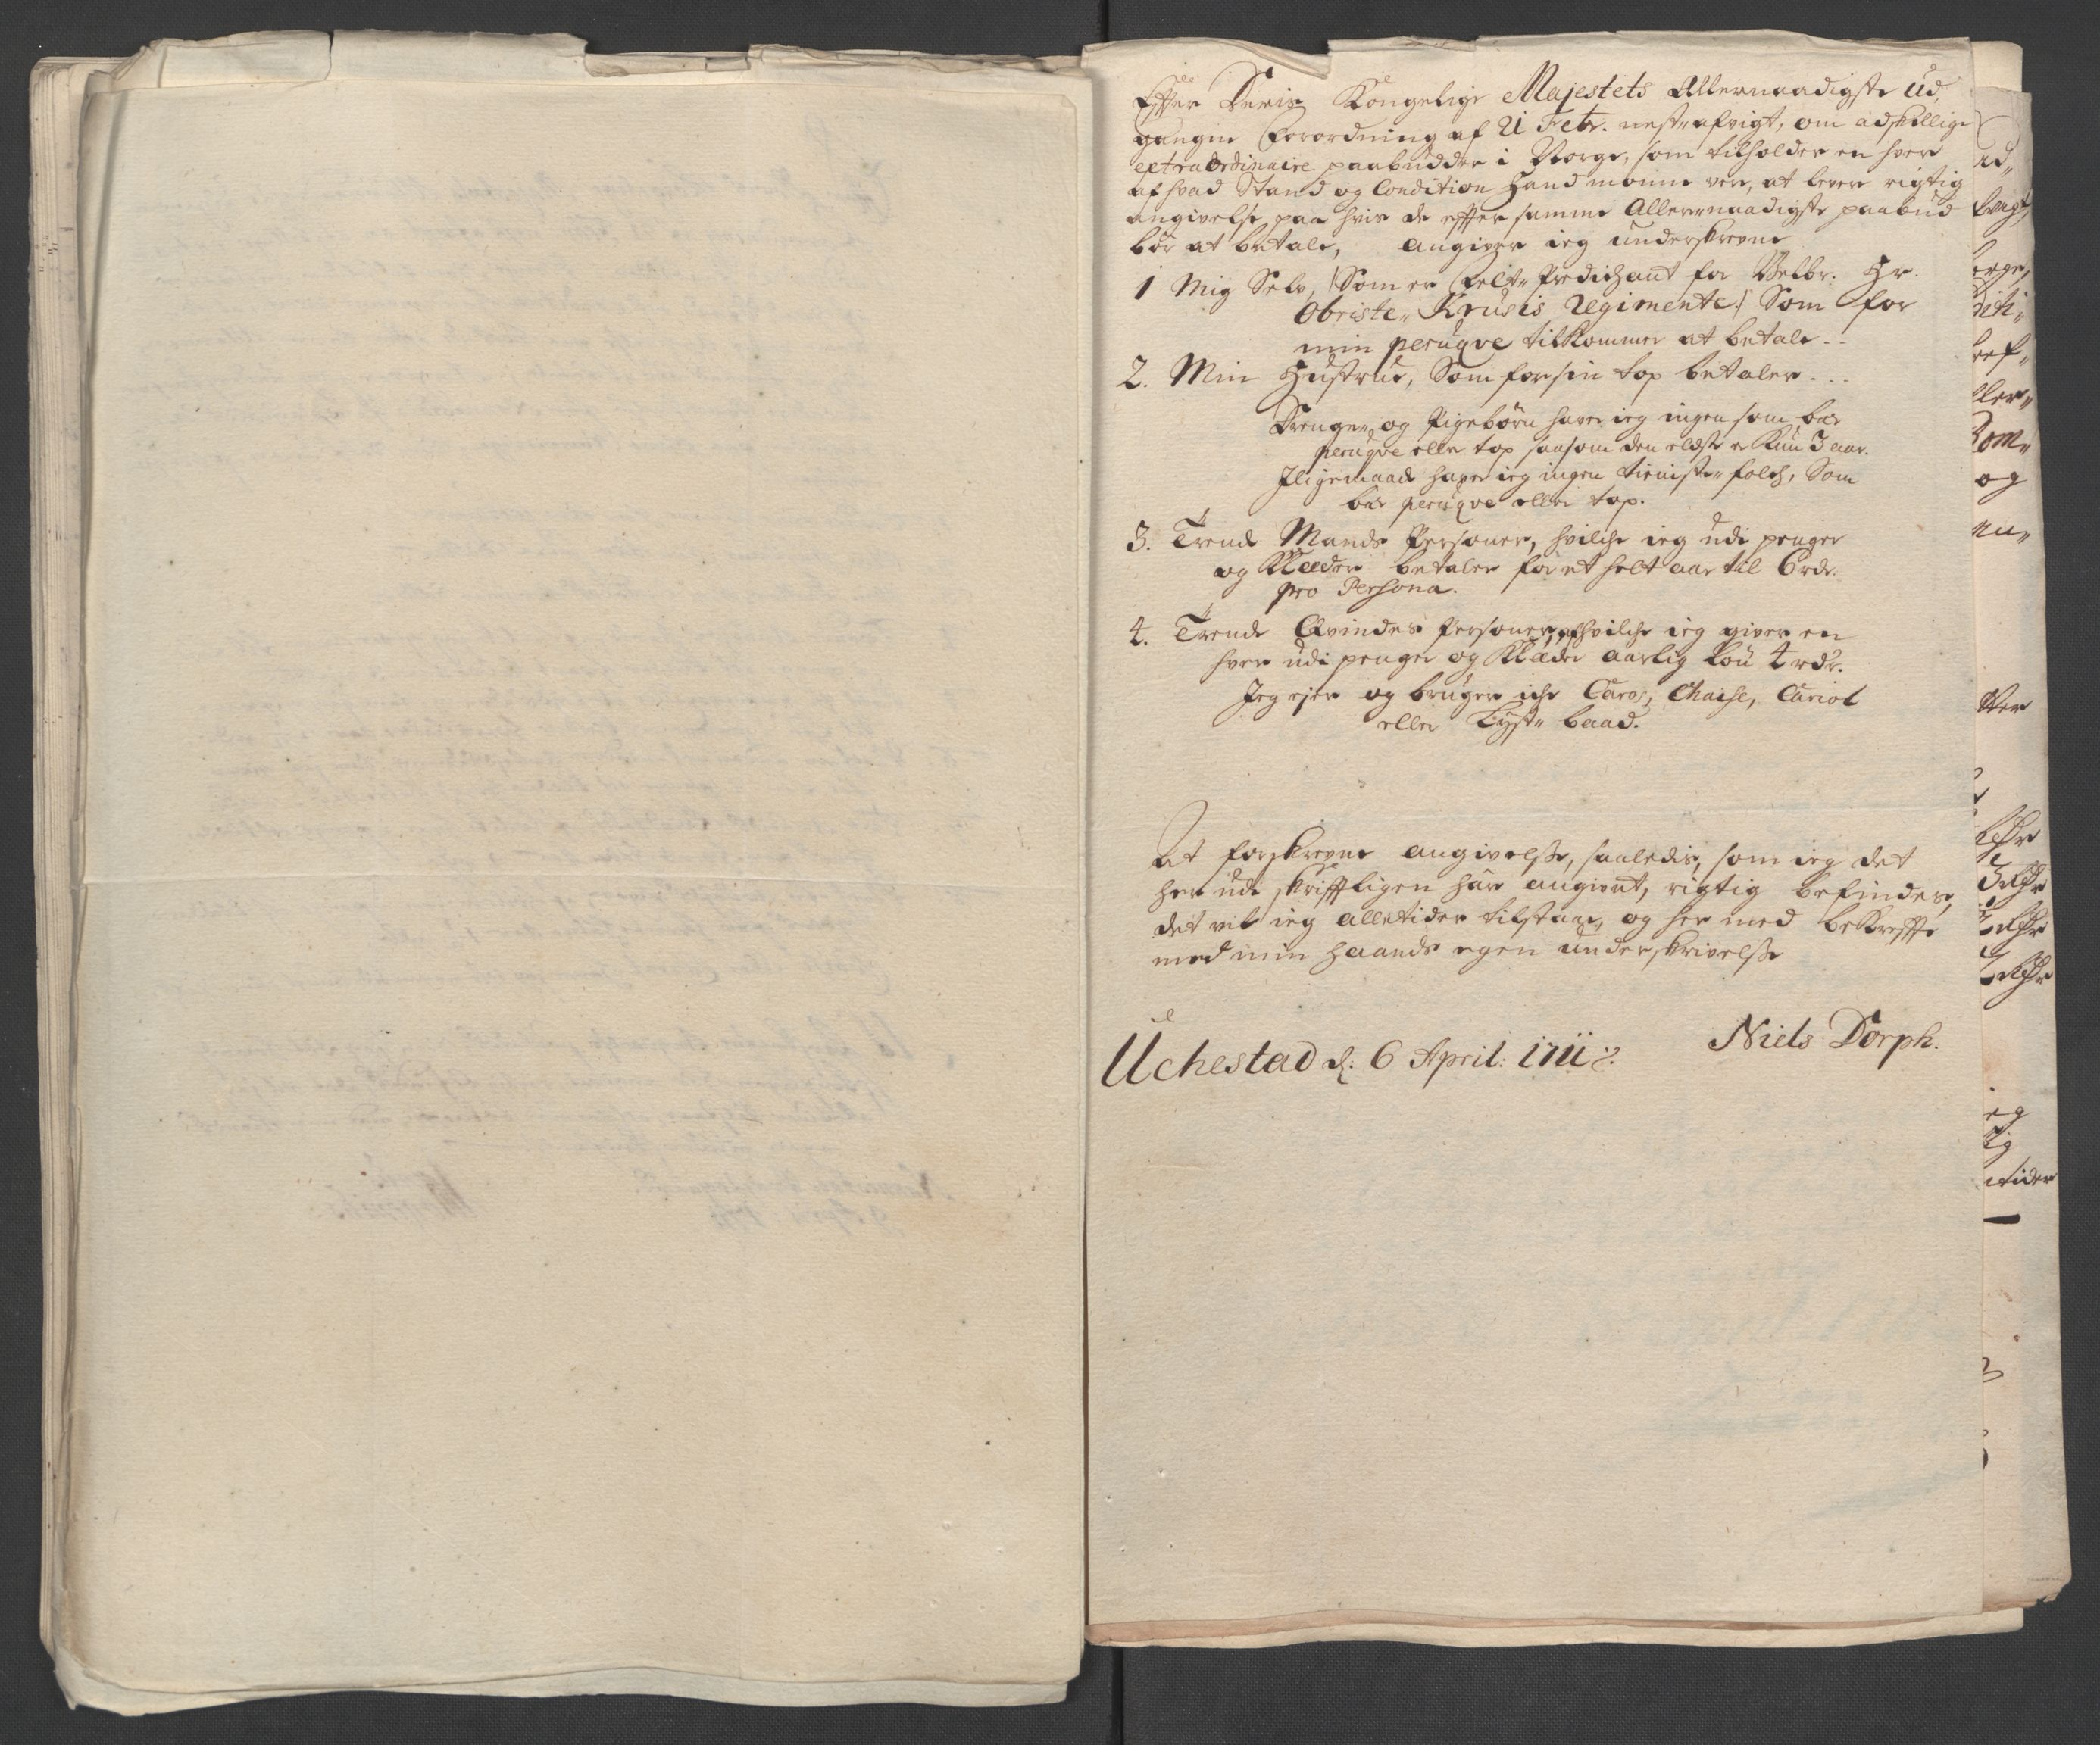 Effter Deris Kongelige Majestets Allernaadigste ud,
gangne Forordning af 21 Febr. nest afvigt, om adskillige
extraordinaire paabudder i Norge, som tilholder en hver
af hvad Stand og Condition Hand monne vere, at levere rigtig
angivelse, paa hvis de effter samme Allernaadigste paabud
bör at betale, angiver ieg underskrevne
1 Mig Selv, /:Som er Felt-Predichant for Velbr. Hr.
Obriste Krusis Regimente:/ Som for
min peruqve tilkommer at betale..
2. Min Hustrue, Som for sin top betaler...
Drenge- og Pigebörn haver ieg ingen som bær
peruqve eller top saasom den eldste er kun 3 aar.
Iligemaade haver ieg ingen tieniste-folch, Som
bær peruqve eller top.
3. Trende Mands Personer, hvilche ieg udi penger
og Klæder betaler for et helt aar til 6 rdr.
pro Persona.
4. Trende Qvindes Personer, af hvilche ieg giver en
hver udi penger og Klæder aarlig lön 4 rdr.
Jeg ejer og bruger iche Caros, Chaise, Cariol
eller Lyst- baad.
At forskrevne angivelse, saaledis, som ieg det
her udi skrifftligen har angivet, rigtig befindes,
det vil ieg alletider tilstaae, og her med bekreffte
med min haands egen underskrivelse
Uchestad d: 6 April: 1711
Niels Dorph.